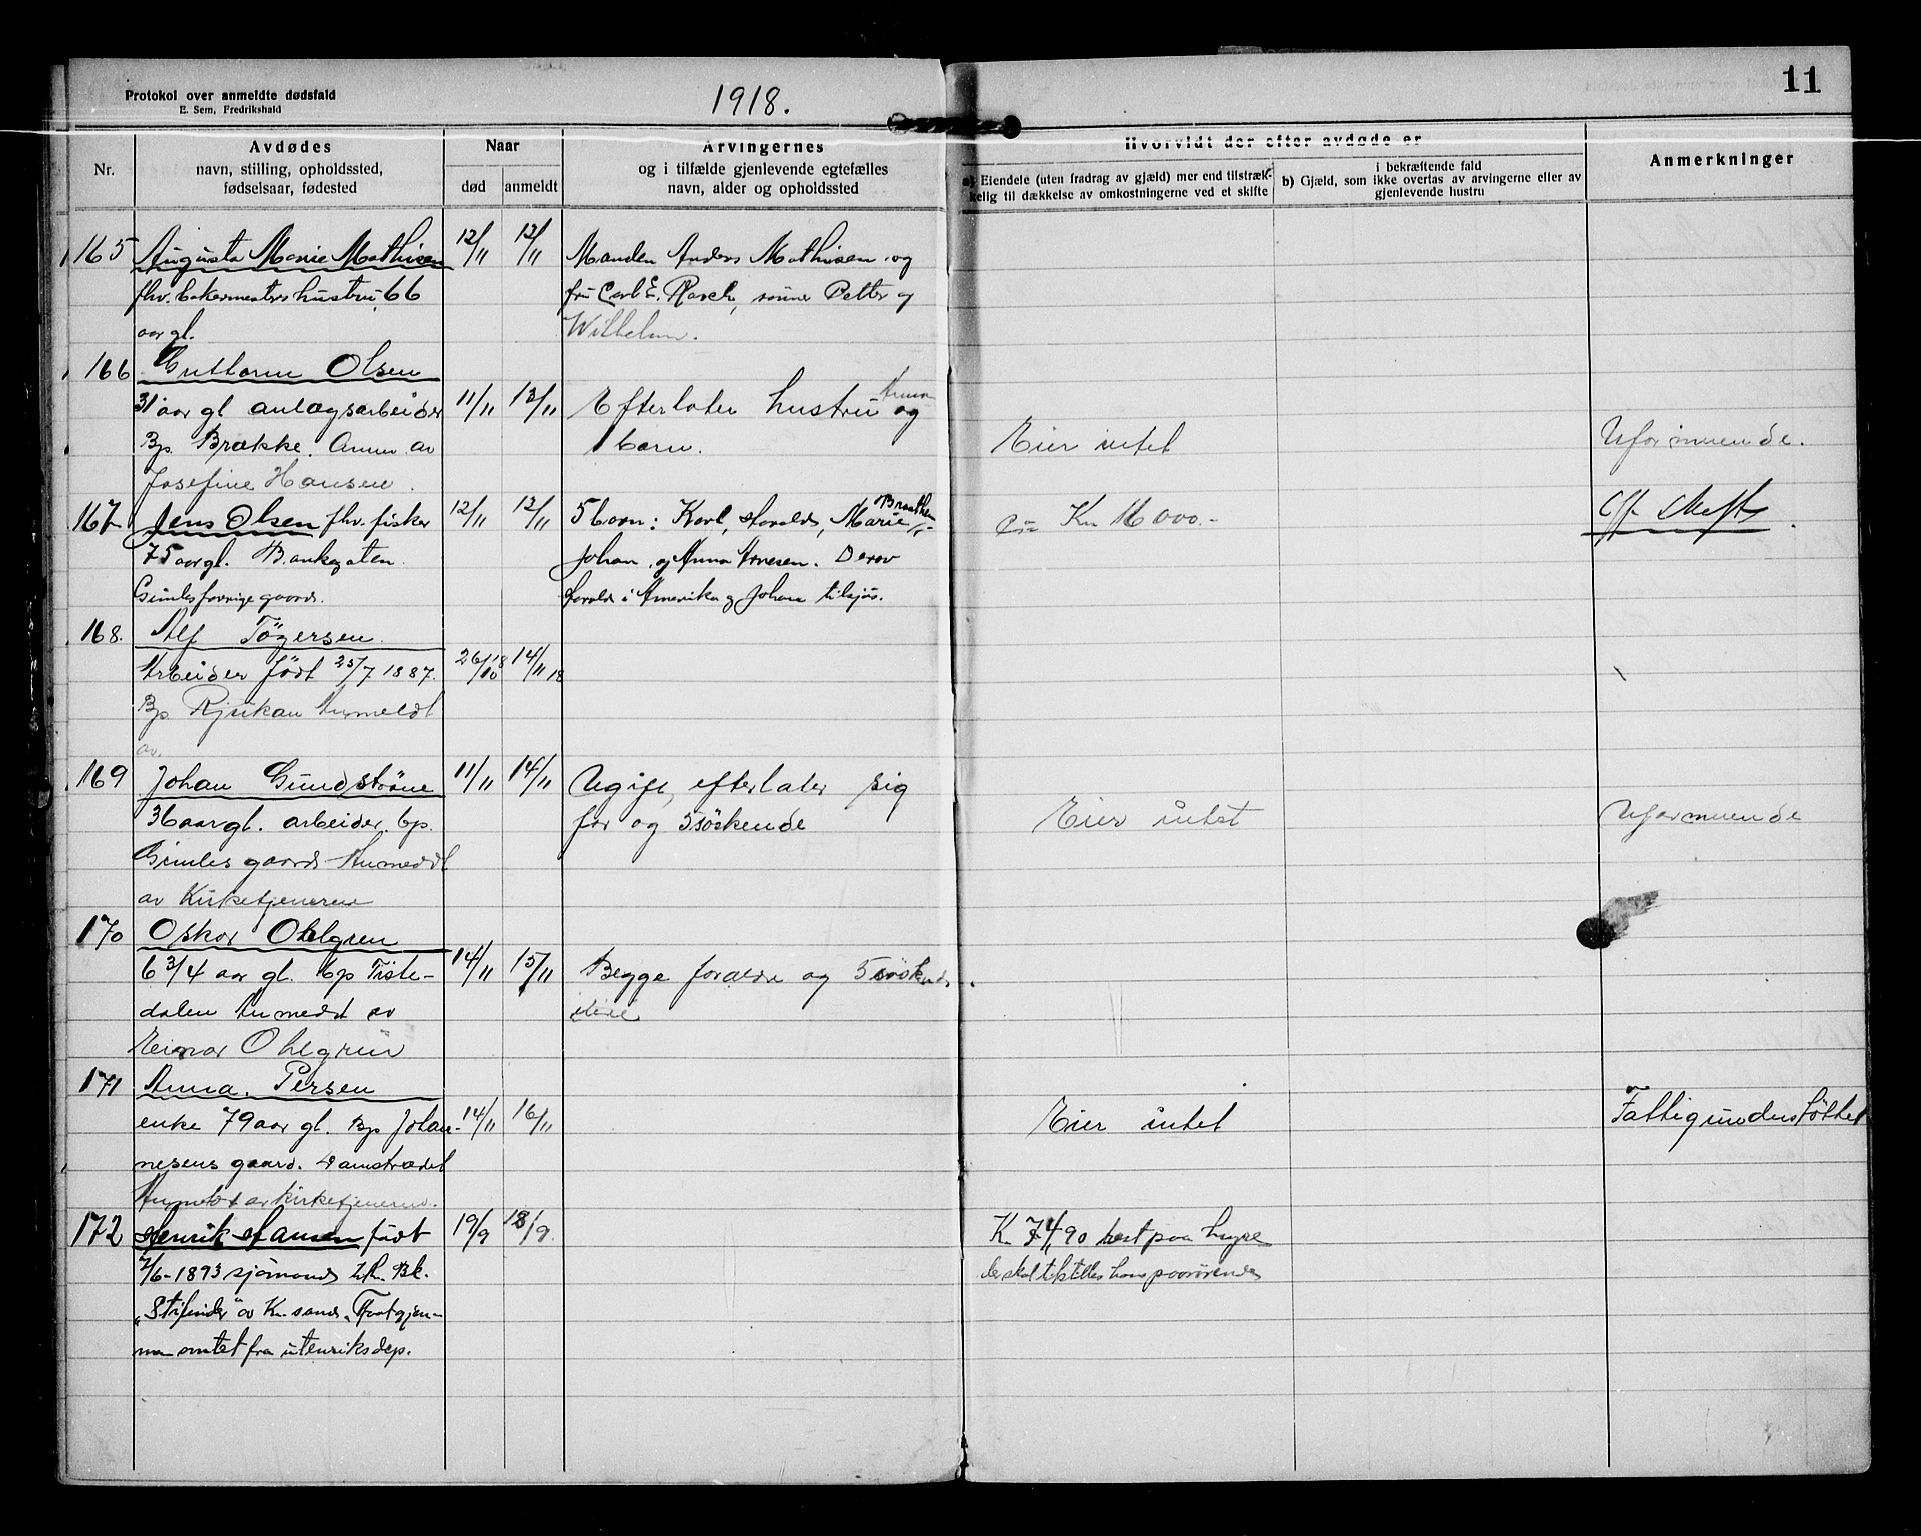 Protokol over anmeldte dødsfald
E. Sem, Fredrikshald
1918.
11
Nr.
Avdødes
navn, stilling, opholdssted,
fødselsaar, fødested
Naar
død
anmeldt
Arvingernes
og i tilfælde gjenlevende egtefælles
navn, alder og opholdssted
Hvorvidt der efter avdøde er
a) Eiendele (uten fradrag av gjæld) mer end tilstræk-
kelig til dækkelse av omkostningerne ved et skifte
i bekræftende fald
b) Gjæld, som ikke overtas av arvingerne eller av
gjenlevende hustru
Anmerkninger
165 Augusta Marie Mathisen 12/11 12/11 Manden Anders Mathisen og
fhv. bakermesters hustru, 66 fru Carl E. Rasch, sønner Petter og
aar gl. Wilhelm.
166 Guttorm Olsen
31 aar gl anlægsarbeider 11/11 12/11 Efterlater hustru Anna og
Bp. Brække. Anm. av 1 barn. Eier intet Uformuende.
Josefine Hansen.
167 Jens Olsen fhv. fisker 12/11 12/11 5 barn: Karl, Harald, Marie Braathen Kr 16000.-
75 aar gl. Bankegaten. Johan, og Anna Arnesen. Derav
Gimles forrige gaard. Harald i Amerika og Johan tilsjøs.
168. Alf Tögersen.
Arbeider født 25/7 1887. 26/10 18 14/11 18
Bp Rjukan Anmeldt
av.
169 Johan Gundstrøm 11/11 14/11 Ugift, efterlater sig
36 aar gl. arbeider. bp. far og 5 söskende Eier intet Uformuende
Gimles gaard Anmeldt
av Kirketjeneren
170 Oskar Ohlgren
6 3/4 aar gl. bp Tiste- 14/11 15/11 Begge forældre og 5 søskende
dalen Anmeldt av
Einar Ohlgren
171 Anna Persen
enke 79 aar gl. Bp Johan- 14/11 16/11 Eier intet Fattigunderstöttet
nesens gaard. Damstrædet
Anmeldt av kirketjeneren.
172 Henrik Hansen født 19/9 18/9. Kr 74,90 rest paa hyre
7/6-1893 sjömand Bk. der skal tilstilles hans paarørende
„Stifinder" av Kr.sand. Foregjen-
utenriksdep.